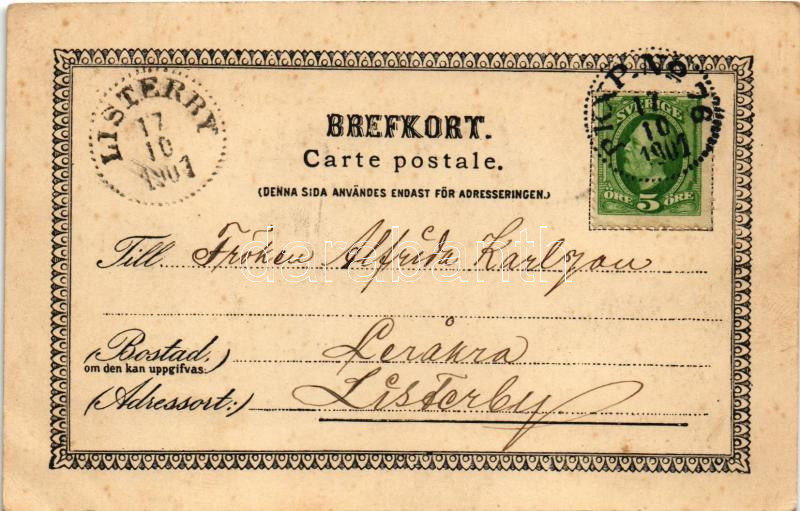 LISTERBY
17
10
1901
PKXP. No 76
17
10
1901
SVERIGE
ÖRE 5 ÖRE
BREFKORT.
Carte postale.
(DENNA SIDA ANVÄNDES ENDAST FÖR ADRESSERINGEN.)
Till Fröken Alfrida Karlzon
darabanth
(Bostad,) Leråkra
om den kan uppgifvas.
(Adressort:) Listerby